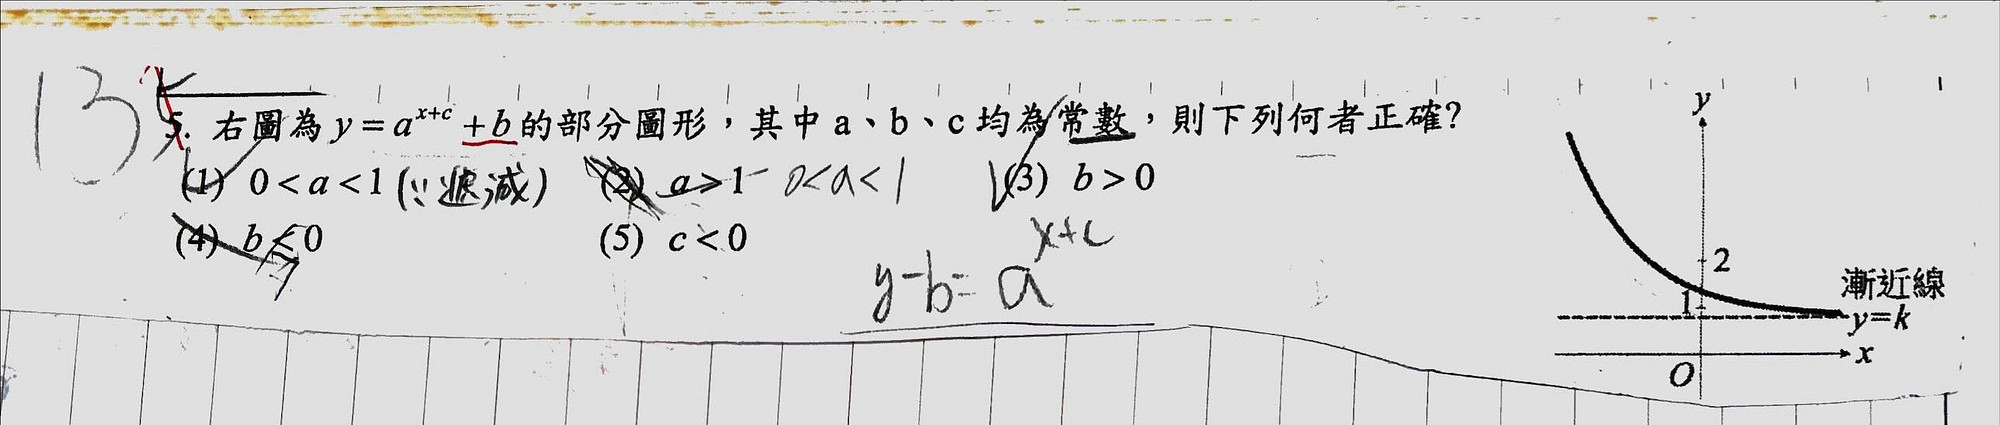 13
5. 右圖為 y = a^{x+c} + b 的部分圖形，其中 a、b、c 均為常數，則下列何者正確?
(1) 0 < a < 1 (∵遞減) (2) a > 1 0<a<1 (3) b > 0
(4) b ≤ 0 (5) c < 0
y-b = a^{x+c}
y
2
1
漸近線
y=k
x
O